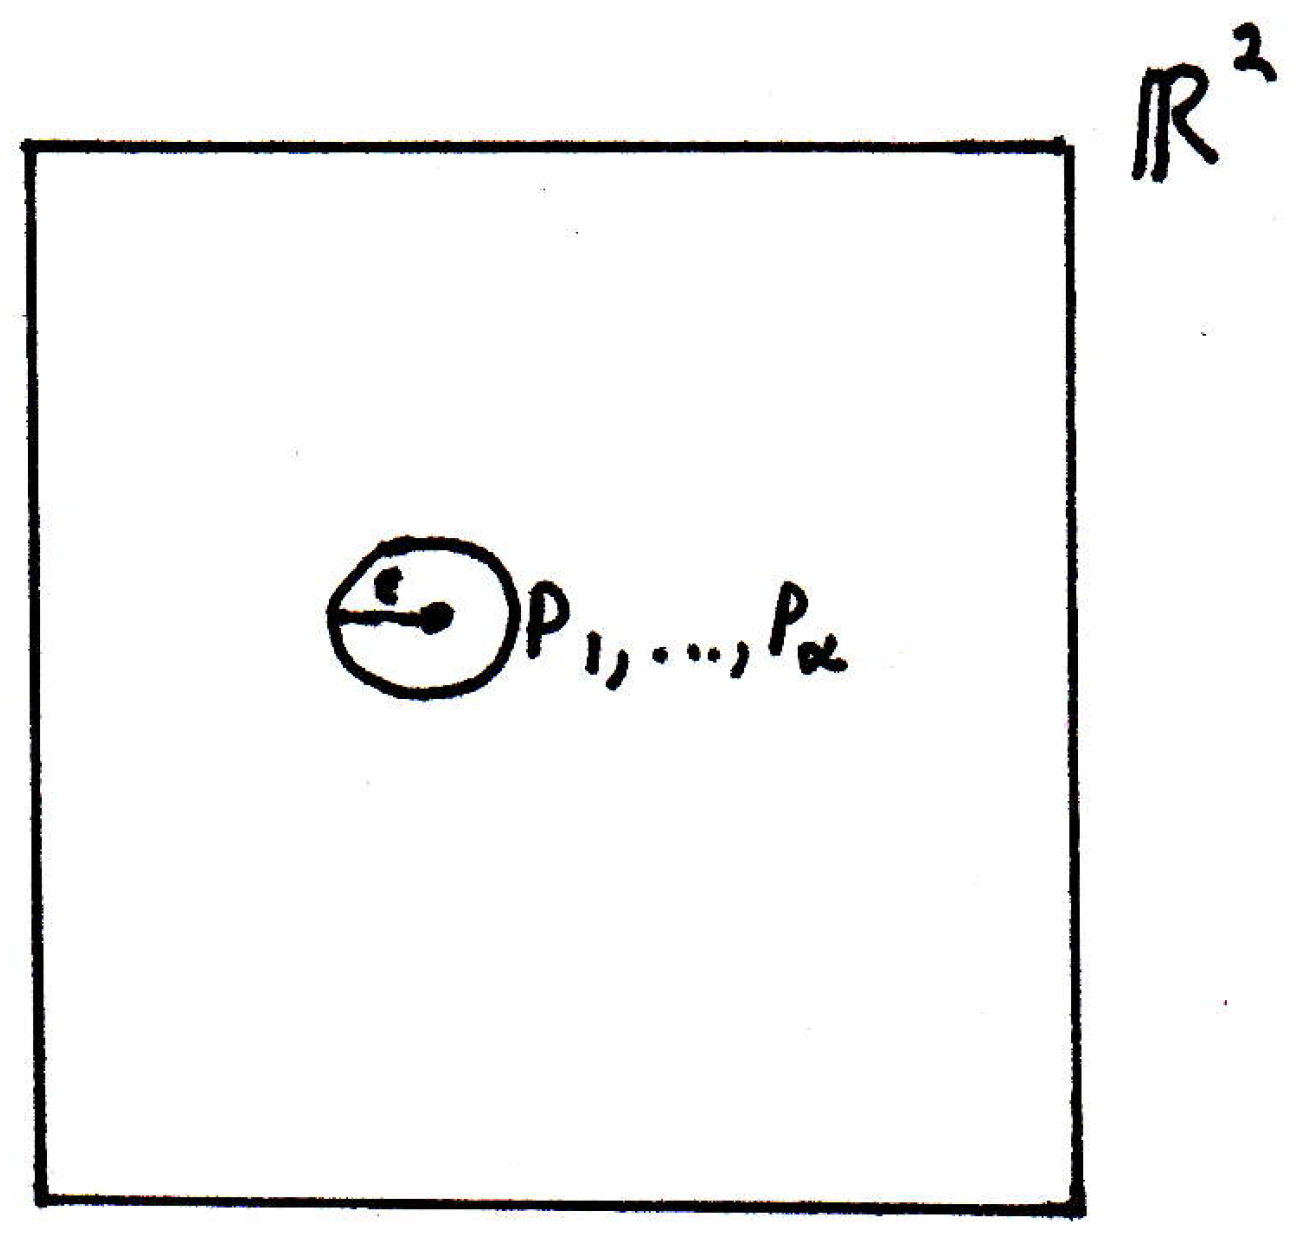 ℝ²
e
P₁,...,P_α